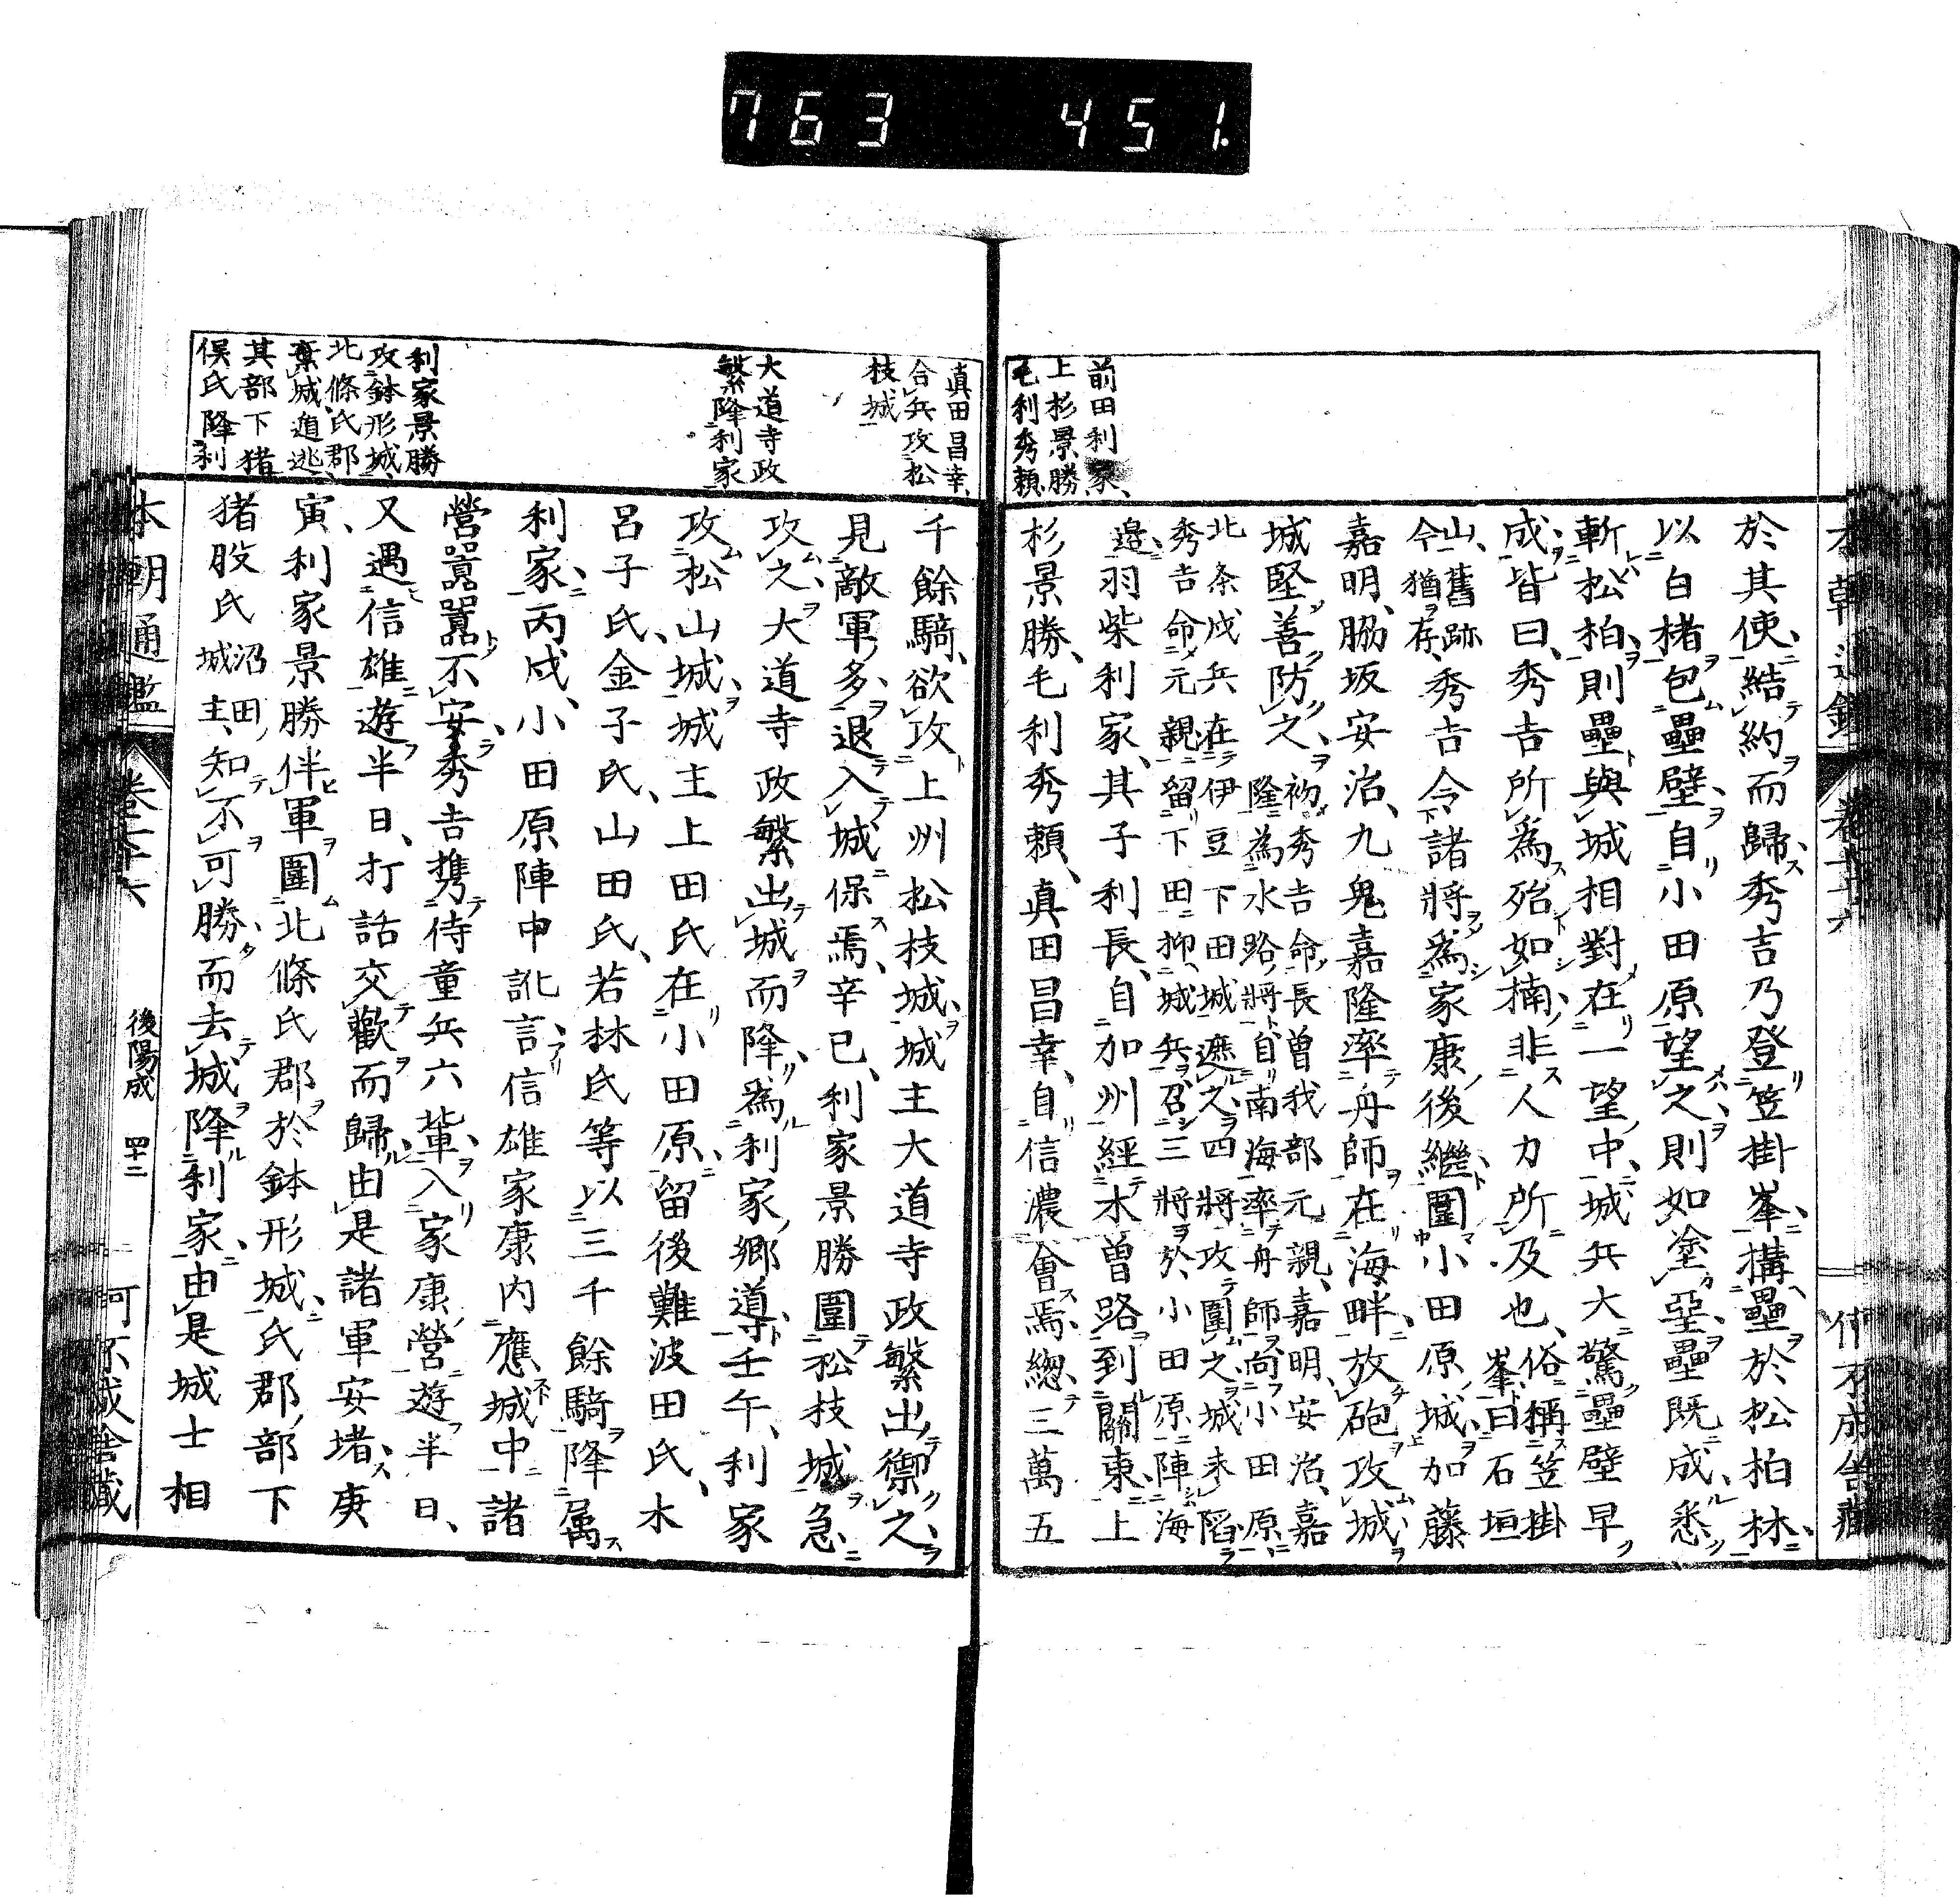 763 451.
前田利家、
上杉景勝、
毛利秀頼、
於其使、結約而歸、秀吉乃登笠掛峯、構壘於松柏林、
以白楮包壘壁、自小田原望之、則如塗堊、壘既成、悉
斬松柏、則壘與城相對、在一望中、城兵大驚壘壁早
成、皆曰、秀吉所為殆如楠、非人力所及也、俗稱笠掛
峯曰石垣
山、舊跡
今猶存、秀吉令諸將為家康後繼、圍小田原城、加藤
嘉明、脇坂安治、九鬼嘉隆率舟師在海畔、放砲攻城、
城堅善防之、初秀吉命長曽我部元親、嘉明、安治、嘉
隆為水路將、自南海率舟師向小田原、
北条戍兵在伊豆下田城遮之、四將攻圍之、城未陷、
秀吉命元親留下田抑城兵、召三將於小田原陣海
邉、羽柴利家、其子利長、自加州經木曽路到關東、上
杉景勝、毛利秀頼、真田昌幸、自信濃會焉、總三萬五
真田昌幸、
合兵攻松
枝城
大道寺政
繁降利家
利家景勝
攻鉢形城、
北條氏郡
棄城遁逃、
其部下猪
俣氏降利
千餘騎、欲攻上州松枝城、城主大道寺政繁出禦之、
見敵軍多、退入城保焉、辛巳、利家景勝圍松枝城急
攻之、大道寺政繁出城而降、為利家鄉導、壬午、利家
攻松山城、城主上田氏在小田原、留後難波田氏、木
呂子氏、金子氏、山田氏、若林氏等以三千餘騎降属
利家、丙戌、小田原陣中訛言信雄家康内應城中、諸
營囂囂不安、秀吉携侍童兵六輩、入家康營遊半日、
又遇信雄遊半日、打話交歡而歸、由是諸軍安堵、庚
寅、利家景勝伴軍圍北條氏郡於鉢形城、氏郡部下
猪股氏沼田
城主、知不可勝而去城降利家、由是城士相
本朝通鑑
後陽成 四十二